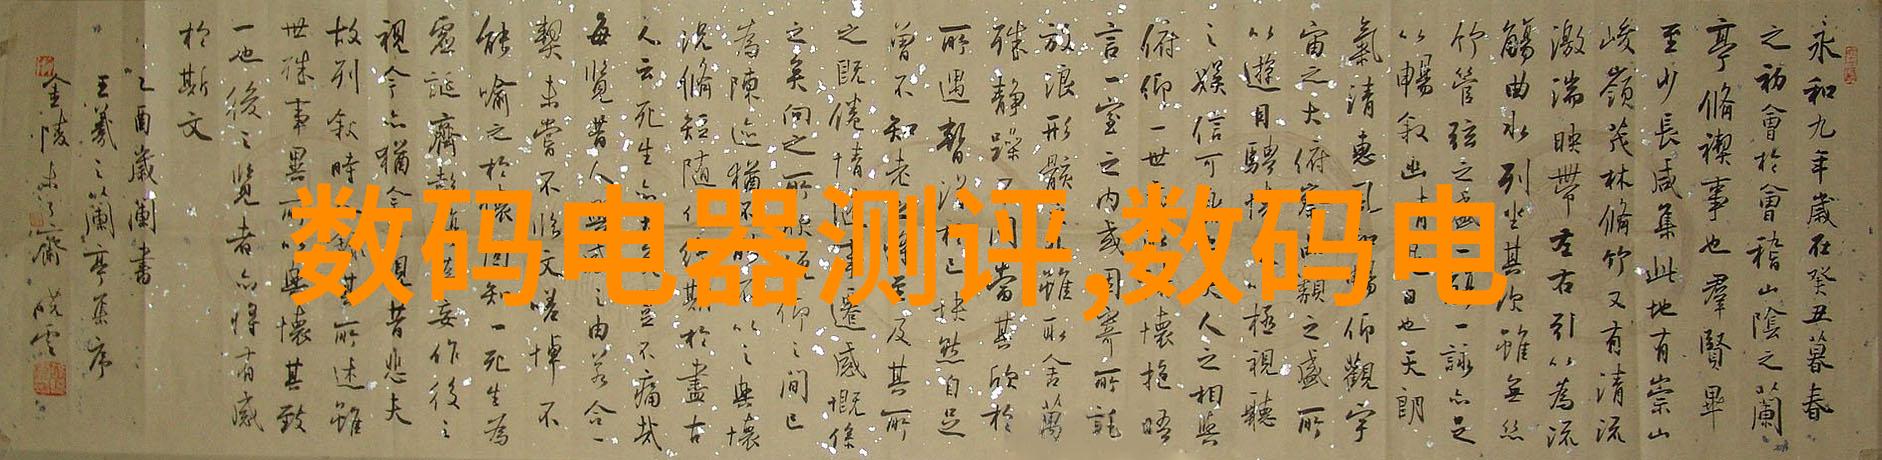 永和九年歲在癸丑暮春
之初會於會稽山陰之蘭
亭脩禊事也羣賢畢
至少長咸集此地有崇山
峻嶺茂林脩竹又有清流
激湍映帶左右引以為流
觴曲水列坐其次雖無絲
竹管弦之盛一觴一詠亦足
以暢敘幽情是日也天朗
氣清惠風和暢仰觀宇
宙之大俯察品類之盛所
以遊目騁懷以極視聽
之娛信可樂也夫人之相與
俯仰一世或取諸懷抱晤
言一室之內或因寄所託
放浪形骸之外雖取舍萬
殊静躁不同當其欣於
所遇暫得於己怏然自足
曾不知老之將至及其所
之既倦情隨事遷感慨係
之矣向之所欣俛仰之間已
為陳迹猶不能不以之興懷
況脩短隨化終期於盡古
人云死生亦大矣豈不痛哉
每覽昔人興感之由若合一
契未嘗不臨文嗟悼不
能喻之於懷固知一死生為
虛誕齊彭殤為妄作後之
視今亦猶今之視昔悲夫
故列敘時人錄其所述雖
世殊事異所以興懷其致
一也後之覽者亦將有感
於斯文
乙酉歲蘭書
王羲之以蘭亭集序
金陵齋
数码电器测评,数码电